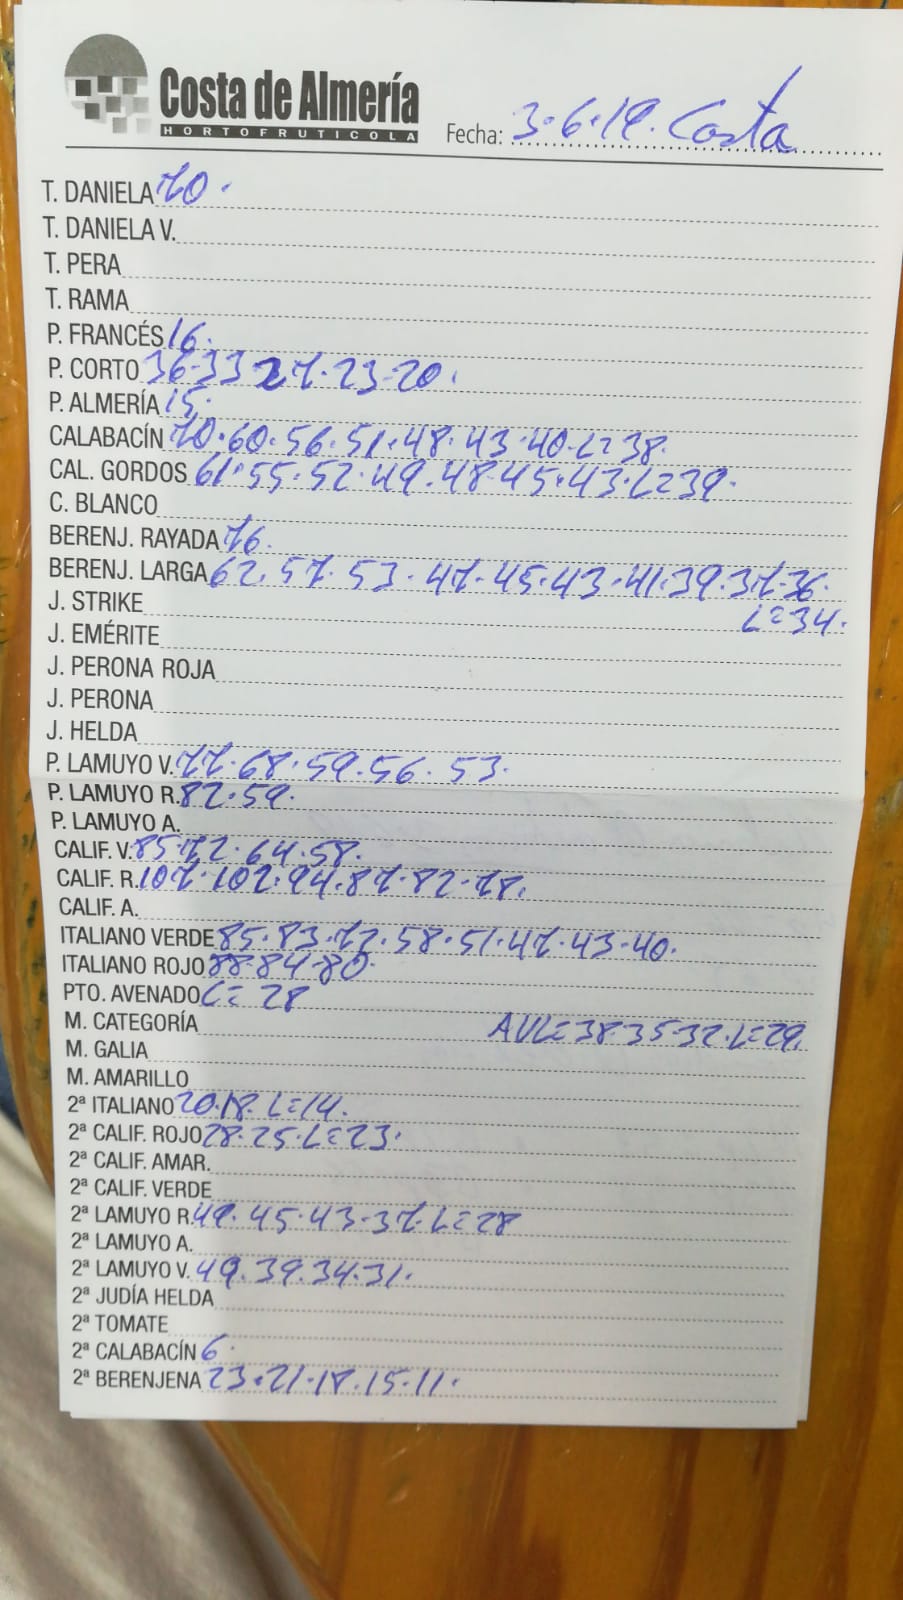 Costa de Almería
HORTOFRUTICOLA
Fecha: 3·6·19· Costa
T. DANIELA 70·
T. DANIELA V.
T. PERA
T. RAMA
P. FRANCÉS 16·
P. CORTO 36-33 27·23-20·
P. ALMERÍA 15·
CALABACÍN 70·60·56·51·48·43·40·L=38·
CAL. GORDOS 61·55·52·49·48·45·43·L=39·
C. BLANCO
BERENJ. RAYADA 76·
BERENJ. LARGA 62·57·53·47·45·43·41·39·37·36·
L=34·
J. STRIKE
J. EMÉRITE
J. PERONA ROJA
J. PERONA
J. HELDA
P. LAMUYO V. 77·68·59·56·53·
P. LAMUYO R. 82·59·
P. LAMUYO A.
CALIF. V. 85·72·64·58·
CALIF. R. 107·102·94·87·82·78·
CALIF. A.
ITALIANO VERDE 85·83·72·58·51·47·43·40·
ITALIANO ROJO 88·84-80·
PTO. AVENADO L= 28
M. CATEGORÍA AVL=38·35·32·L=29·
M. GALIA
M. AMARILLO
2ª ITALIANO 20·18·L=14·
2ª CALIF. ROJO 28·25·L=23·
2ª CALIF. AMAR.
2ª CALIF. VERDE
2ª LAMUYO R. 49·45·43·37·L=28
2ª LAMUYO A.
2ª LAMUYO V. 49·39·34·31·
2ª JUDÍA HELDA
2ª TOMATE
2ª CALABACÍN 6·
2ª BERENJENA 23·21·18·15·11·